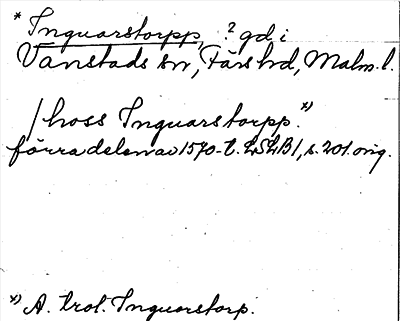 * Inguarstorpp, ? gd i
Vanstads sn, Färs hd, Malm. l.
/ hoss Inguarstorpp. x)
förra delen av 1570-t. LSLB1, s. 201. orig.
x) A. trol. Inguorstorp.